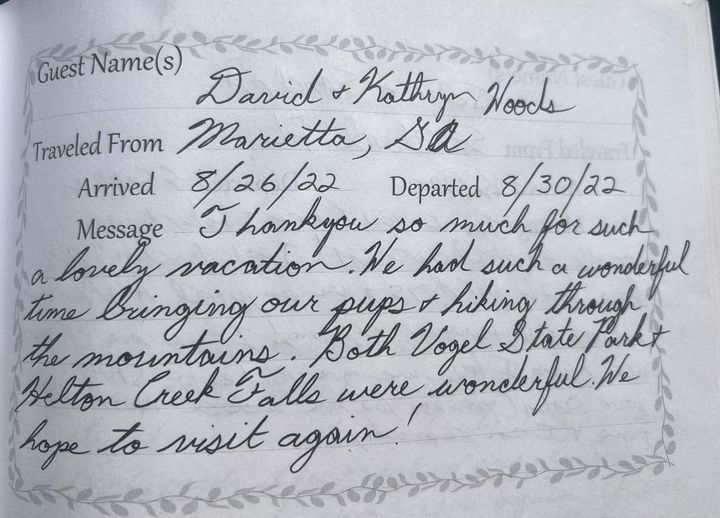 Guest Name(s) David & Kathryn Woods
Traveled From Marietta, GA
Arrived 8/26/22 Departed 8/30/22
Message Thankyou so much for such
a lovely vacation. We had such a wonderful
time bringing our pups & hiking through
the mountains. Both Vogel State Park &
Helton Creek Falls were wonderful. We
hope to visit again!